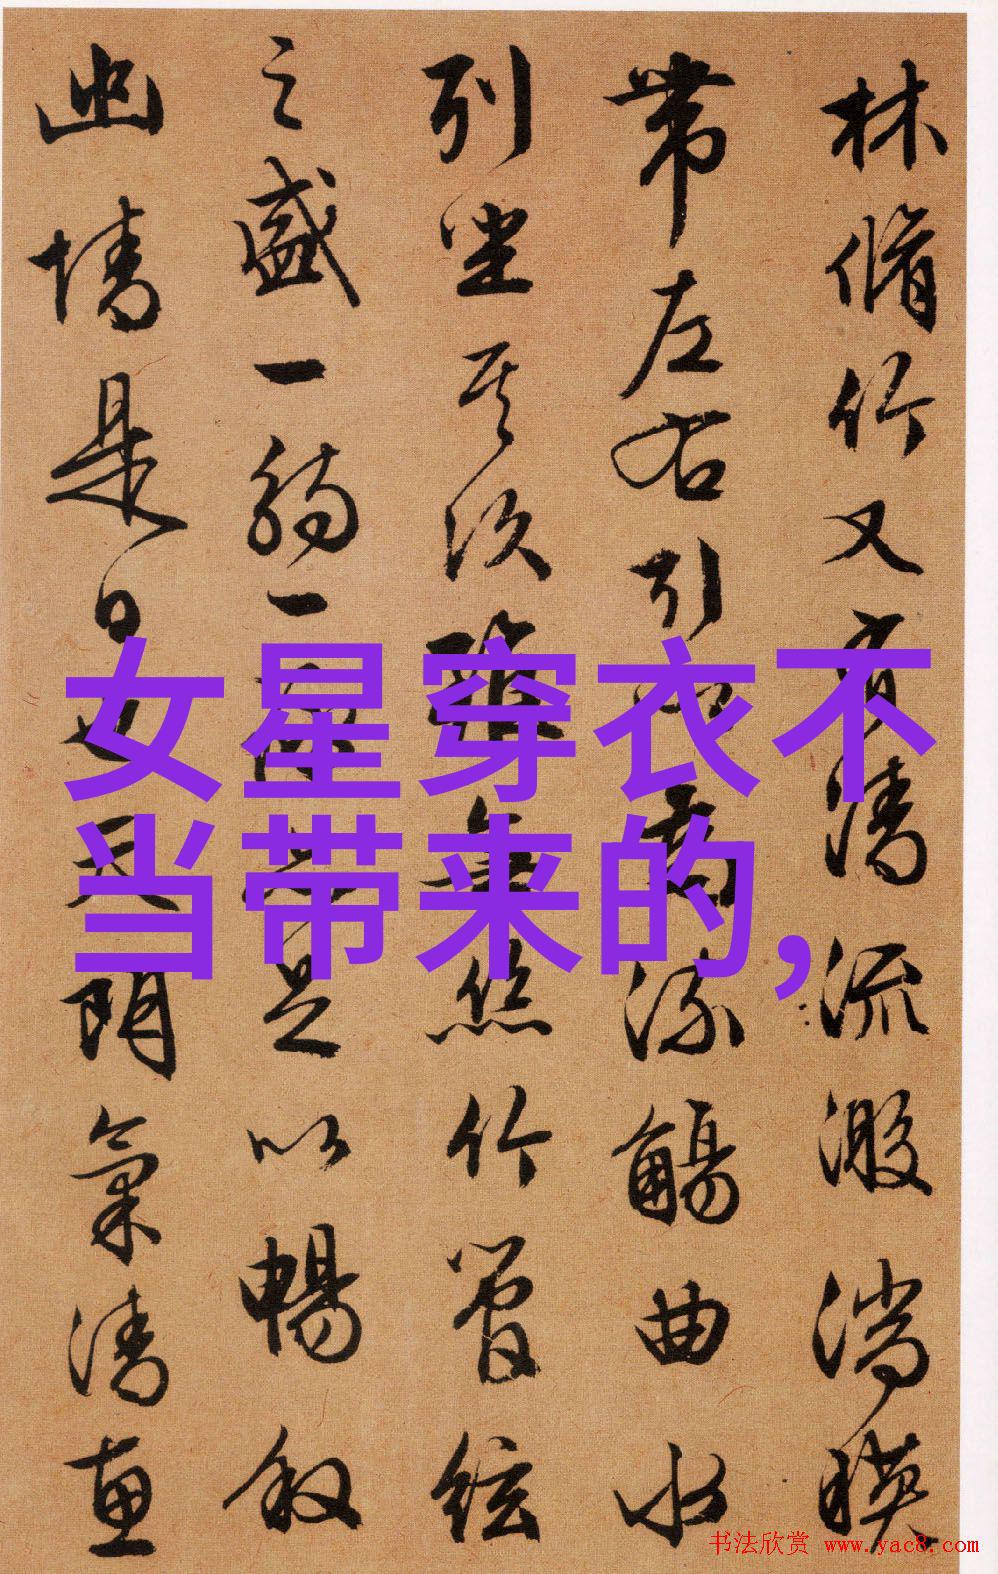 林脩竹又有清流激湍暎
帶左右引以為流觴曲水
列坐其次雖無絲竹管絃
之盛一觴一詠亦足以暢叙
幽情是日也天朗氣清惠
女星穿衣不
当带来的,
书法欣赏 www.yac8.com